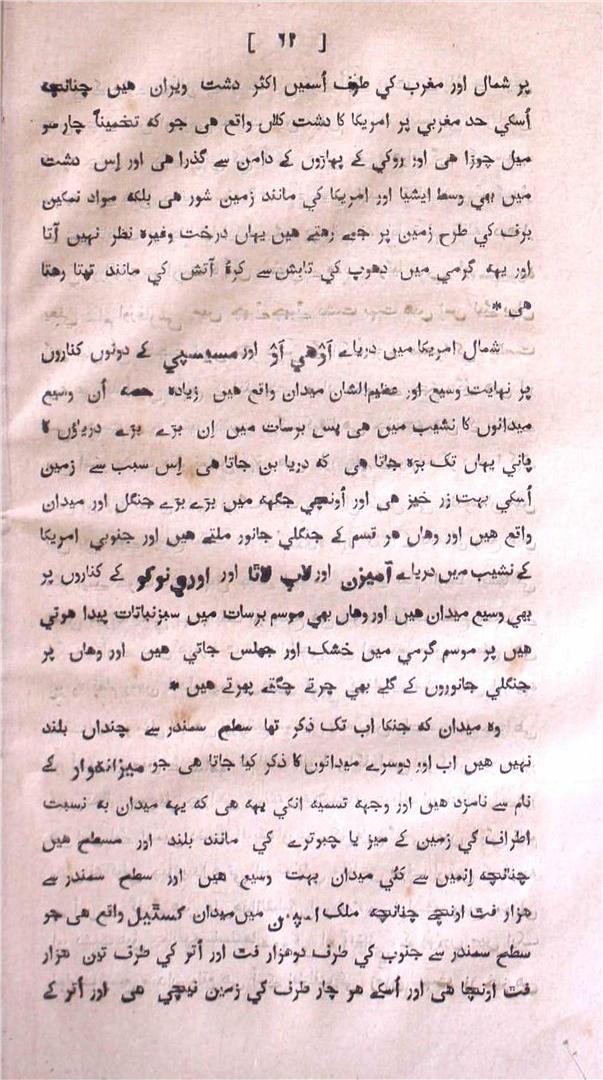 [ ۶۲ ]
پر شمال اور مغرب کي طرف اُسمیں اکثر دشت ویران هیں چنانچه
اُسکي حد مغربي پر امریکا کا دشت کلاں واقع هی جو که تخمیناً چار سو
میل چوڑا هی اور روکي کے پهاڑوں کے دامن سے گذرا هی اور اِس دشت
میں بهي وسط ایشیا اور امریکا کي مانند زمین شور هی بلکه مواد نمکین
برف کي طرح زمین پر جمے رهتے هیں یهاں درخت وغیره نظر نهیں آتا
اور یهه گرمي میں دهوپ کي تابش سے کرۂ آتش کي مانند تپتا رهتا
هی *
شمال امریکا میں دریاے آؤهي آؤ اور مسیسپي کے دونوں کناروں
پر نهایت وسیع اور عظیم‌الشان میدان واقع هیں زیاده حصه اُن وسیع
میدانوں کا نشیب میں هی پس برسات میں اِن بڑے بڑے دریاؤں کا
پاني یهاں تک بڑه جاتا هی که دریا بن جاتا هی اِس سبب سے زمین
اُسکي بهت زر خیز هی اور اُونچي جگهه میں بڑے بڑے جنگل اور میدان
واقع هیں اور وهاں هر قسم کے جنگلي جانور ملتے هیں اور جنوبي امریکا
کے نشیب میں دریاے آمیزن اور لاپ لاٹا اور اوری‌نوکو کے کناروں پر
بهي وسیع میدان هیں اور وهاں بهي موسم برسات میں سبز نباتات پیدا هوتي
هیں پر موسم گرمي میں خشک اور جهلس جاتي هیں اور وهاں پر
جنگلي جانوروں کے گلے بهي چرتے چگتے پهرتے هیں *
وه میدان که جنکا اب تک ذکر تها سطح سمندر سے چنداں بلند
نهیں هیں اب اور دوسرے میدانوں کا ذکر کیا جاتا هی جو میزانموار کے
نام سے نامزد هیں اور وجهه تسمیه انکي یهه هی که یهه میدان به نسبت
اطراف کي زمین کے میز یا چبوترے کي مانند بلند اور مسطح هیں
چنانچه اِنمیں سے کئي میدان بهت وسیع هیں اور سطح سمندر سے
هزار فت اونچے چنانچه ملک اسپین میں میدان کستیل واقع هی جو
سطح سمندر سے جنوب کي طرف دوهزار فت اور اُتر کي طرف تین هزار
فت اونچا هی اور اُسکے هر چار طرف کي زمین نیچي هی اور اُتر کے